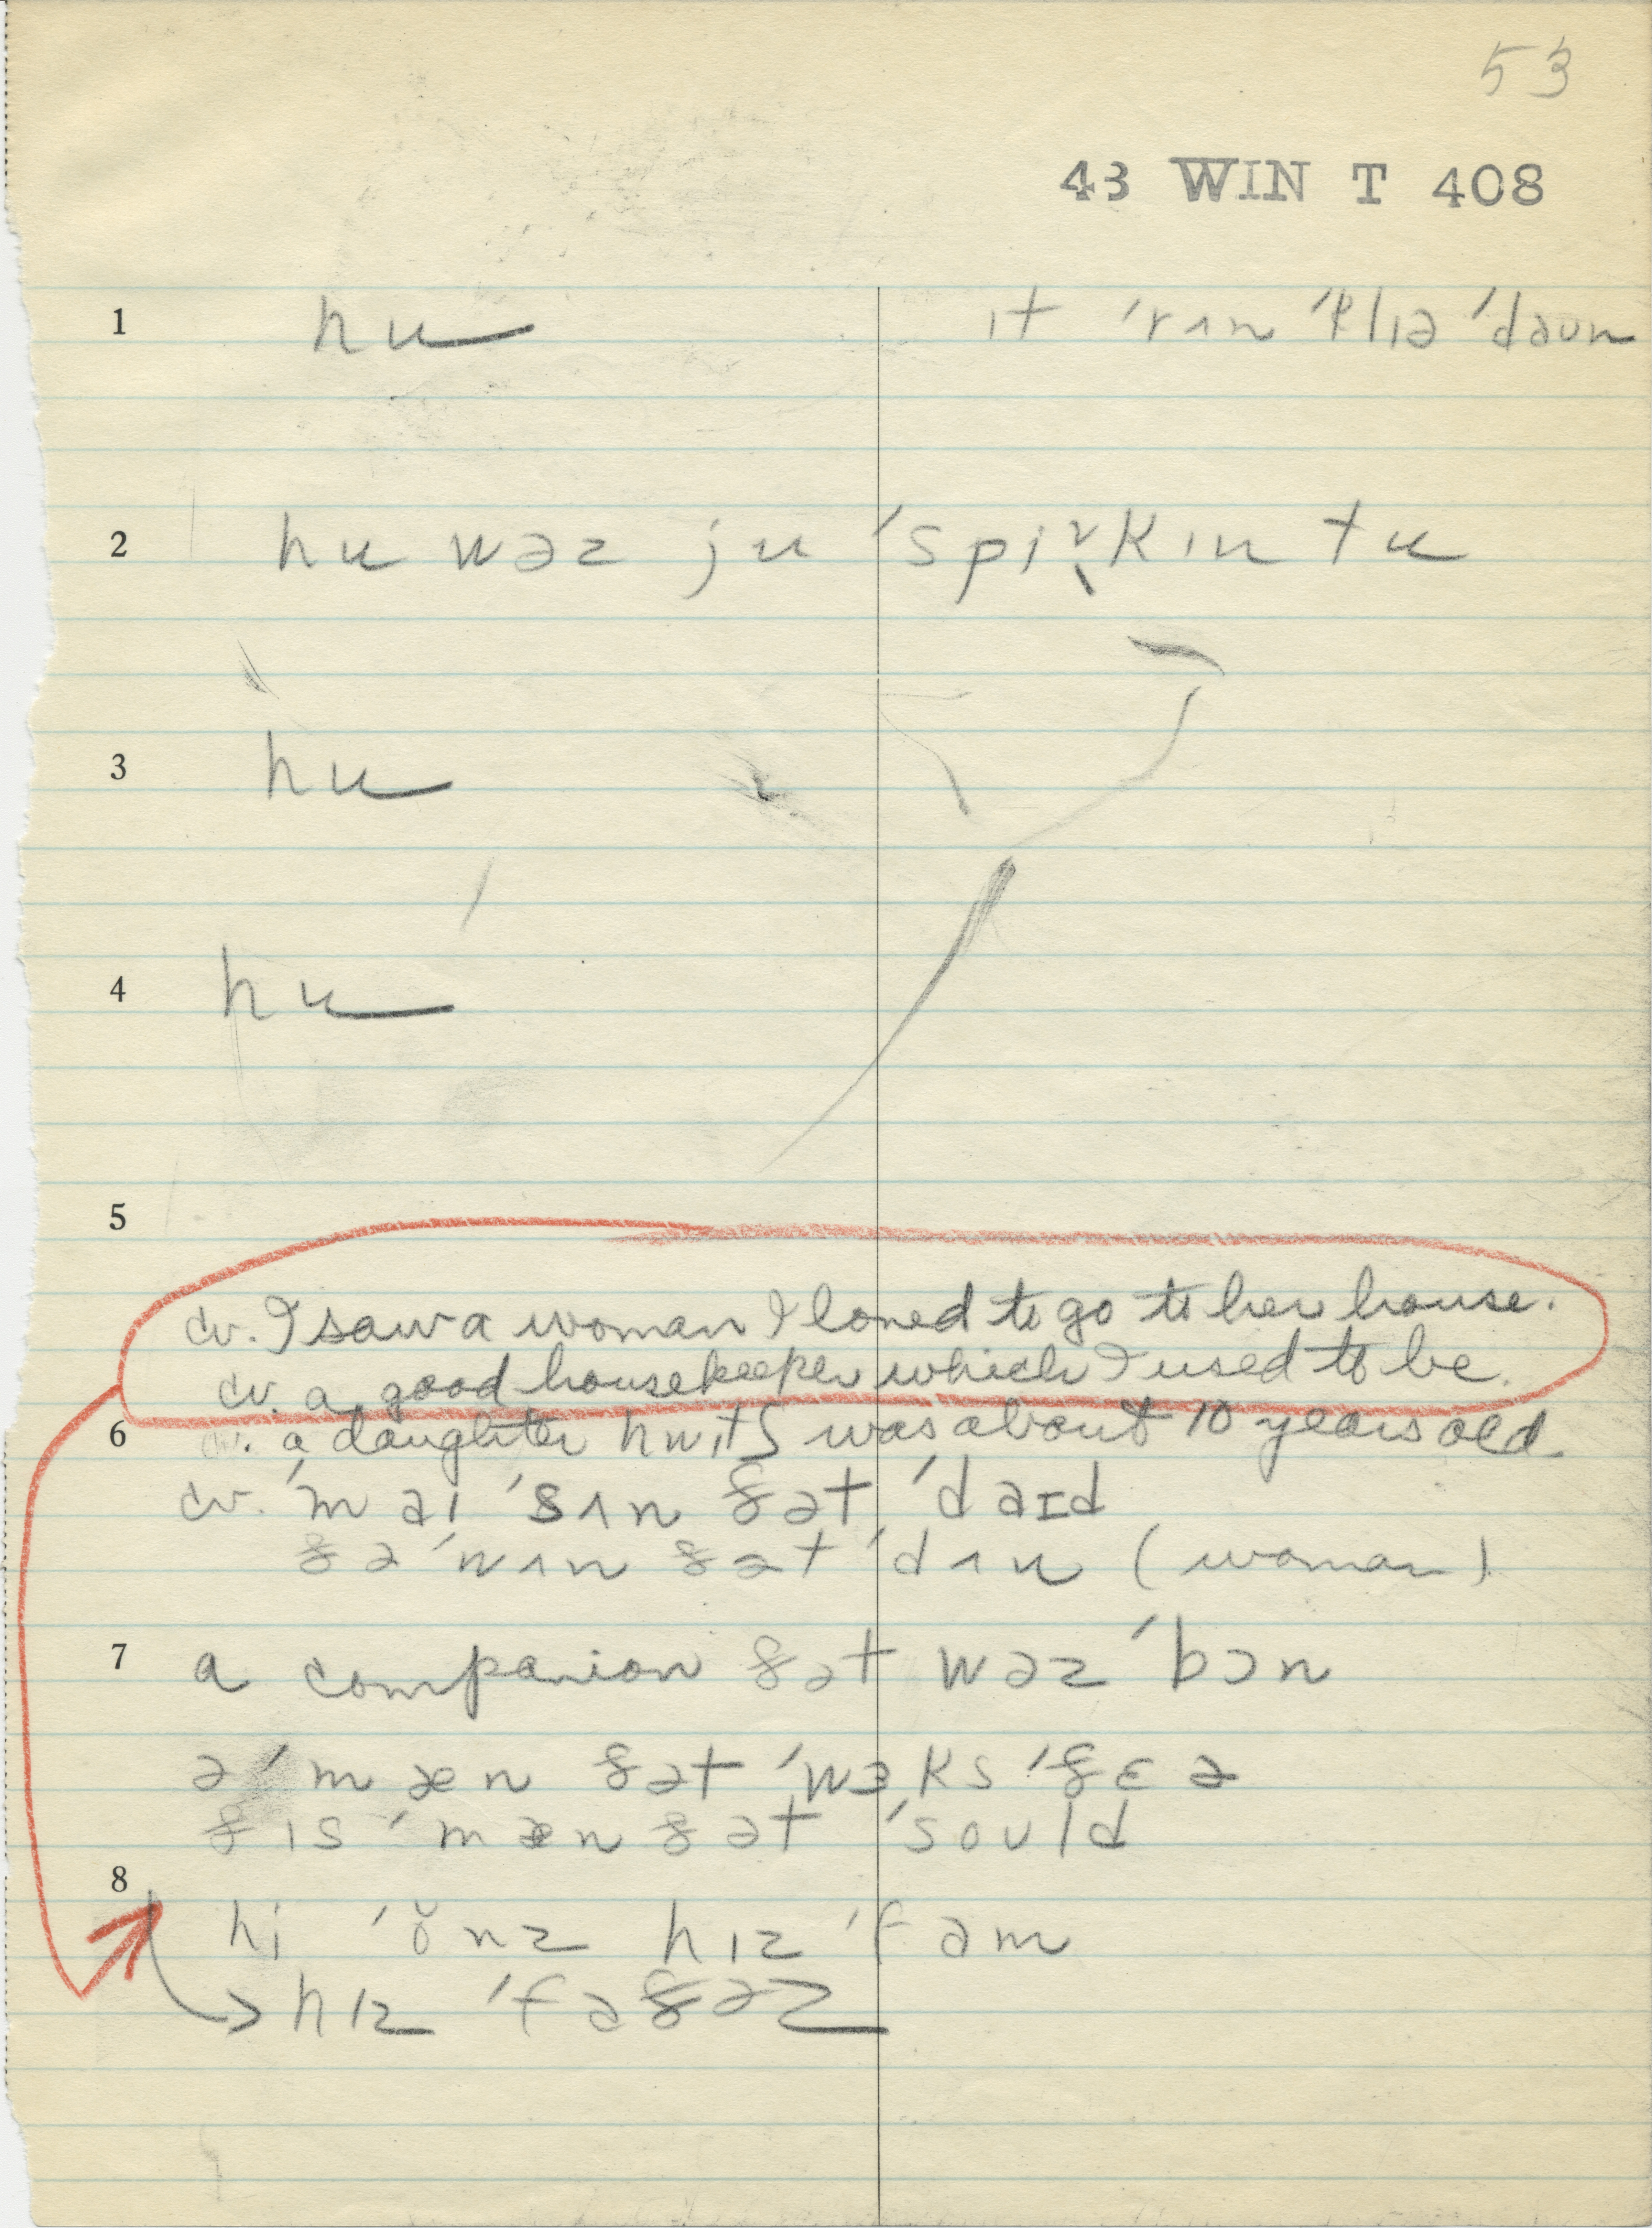 53
43 WIN T 408
1 hu ɪt ˈrʌn ˈklɪə ˈdaʊn
2 hu wəz ju ˈspi˞kɪn tu
3 hu
4 hu
5
cv. I saw a woman I loved to go to her house.
cv. a good housekeeper which I used to be.
6 cv. a daughter hwɪtʃ was about 10 years old
cv. ˈm aɪ ˈsʌn ðət ˈdaɪd
ðə ˈwʌn ðət ˈdʌn (woman)
7 a companion ðət wəz ˈbɔn
ə ˈmæn ðət ˈwɜks ˈðɛə
ðɪs ˈmæn ðət ˈsoʊld
8
hi ˈŏnz hɪz ˈfam
→ hɪz ˈfaðəz